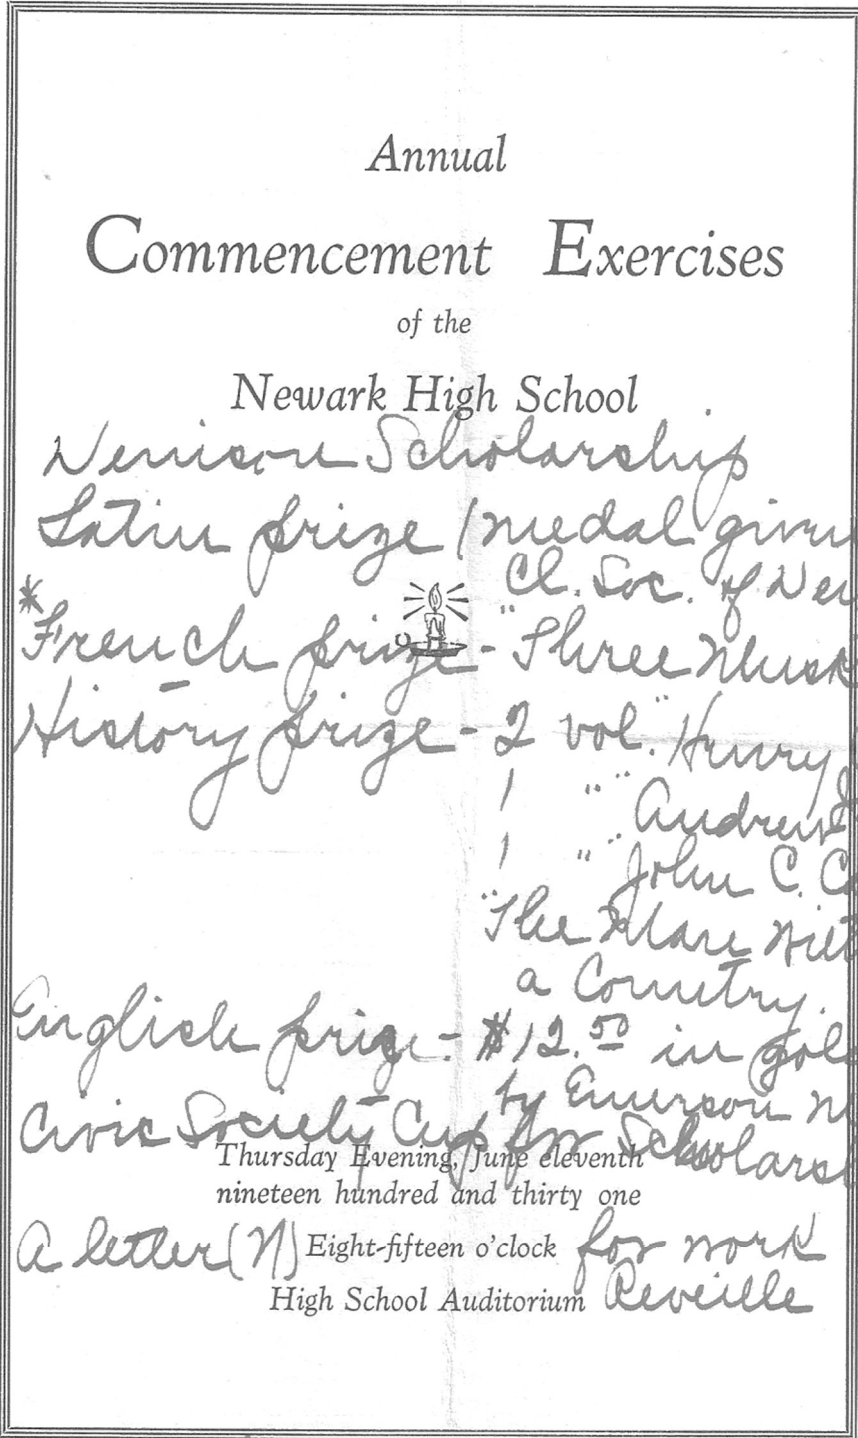 Annual
Commencement Exercises
of the
Newark High School
Denison Scholarship
Latin prize (medal given
Cl. Soc. of Den
*French prize - "Three Musk
History prize - 2 vol. "Henry
1 " " Andrew J
1 " " John C. Ca
"The Man Wit
a Country.
English prize - $12.50 in gol
by Emerson
Civic Society Cup for Scholars
Thursday Evening, June eleventh
nineteen hundred and thirty one
A letter (N) Eight-fifteen o'clock for work
High School Auditorium Reveille